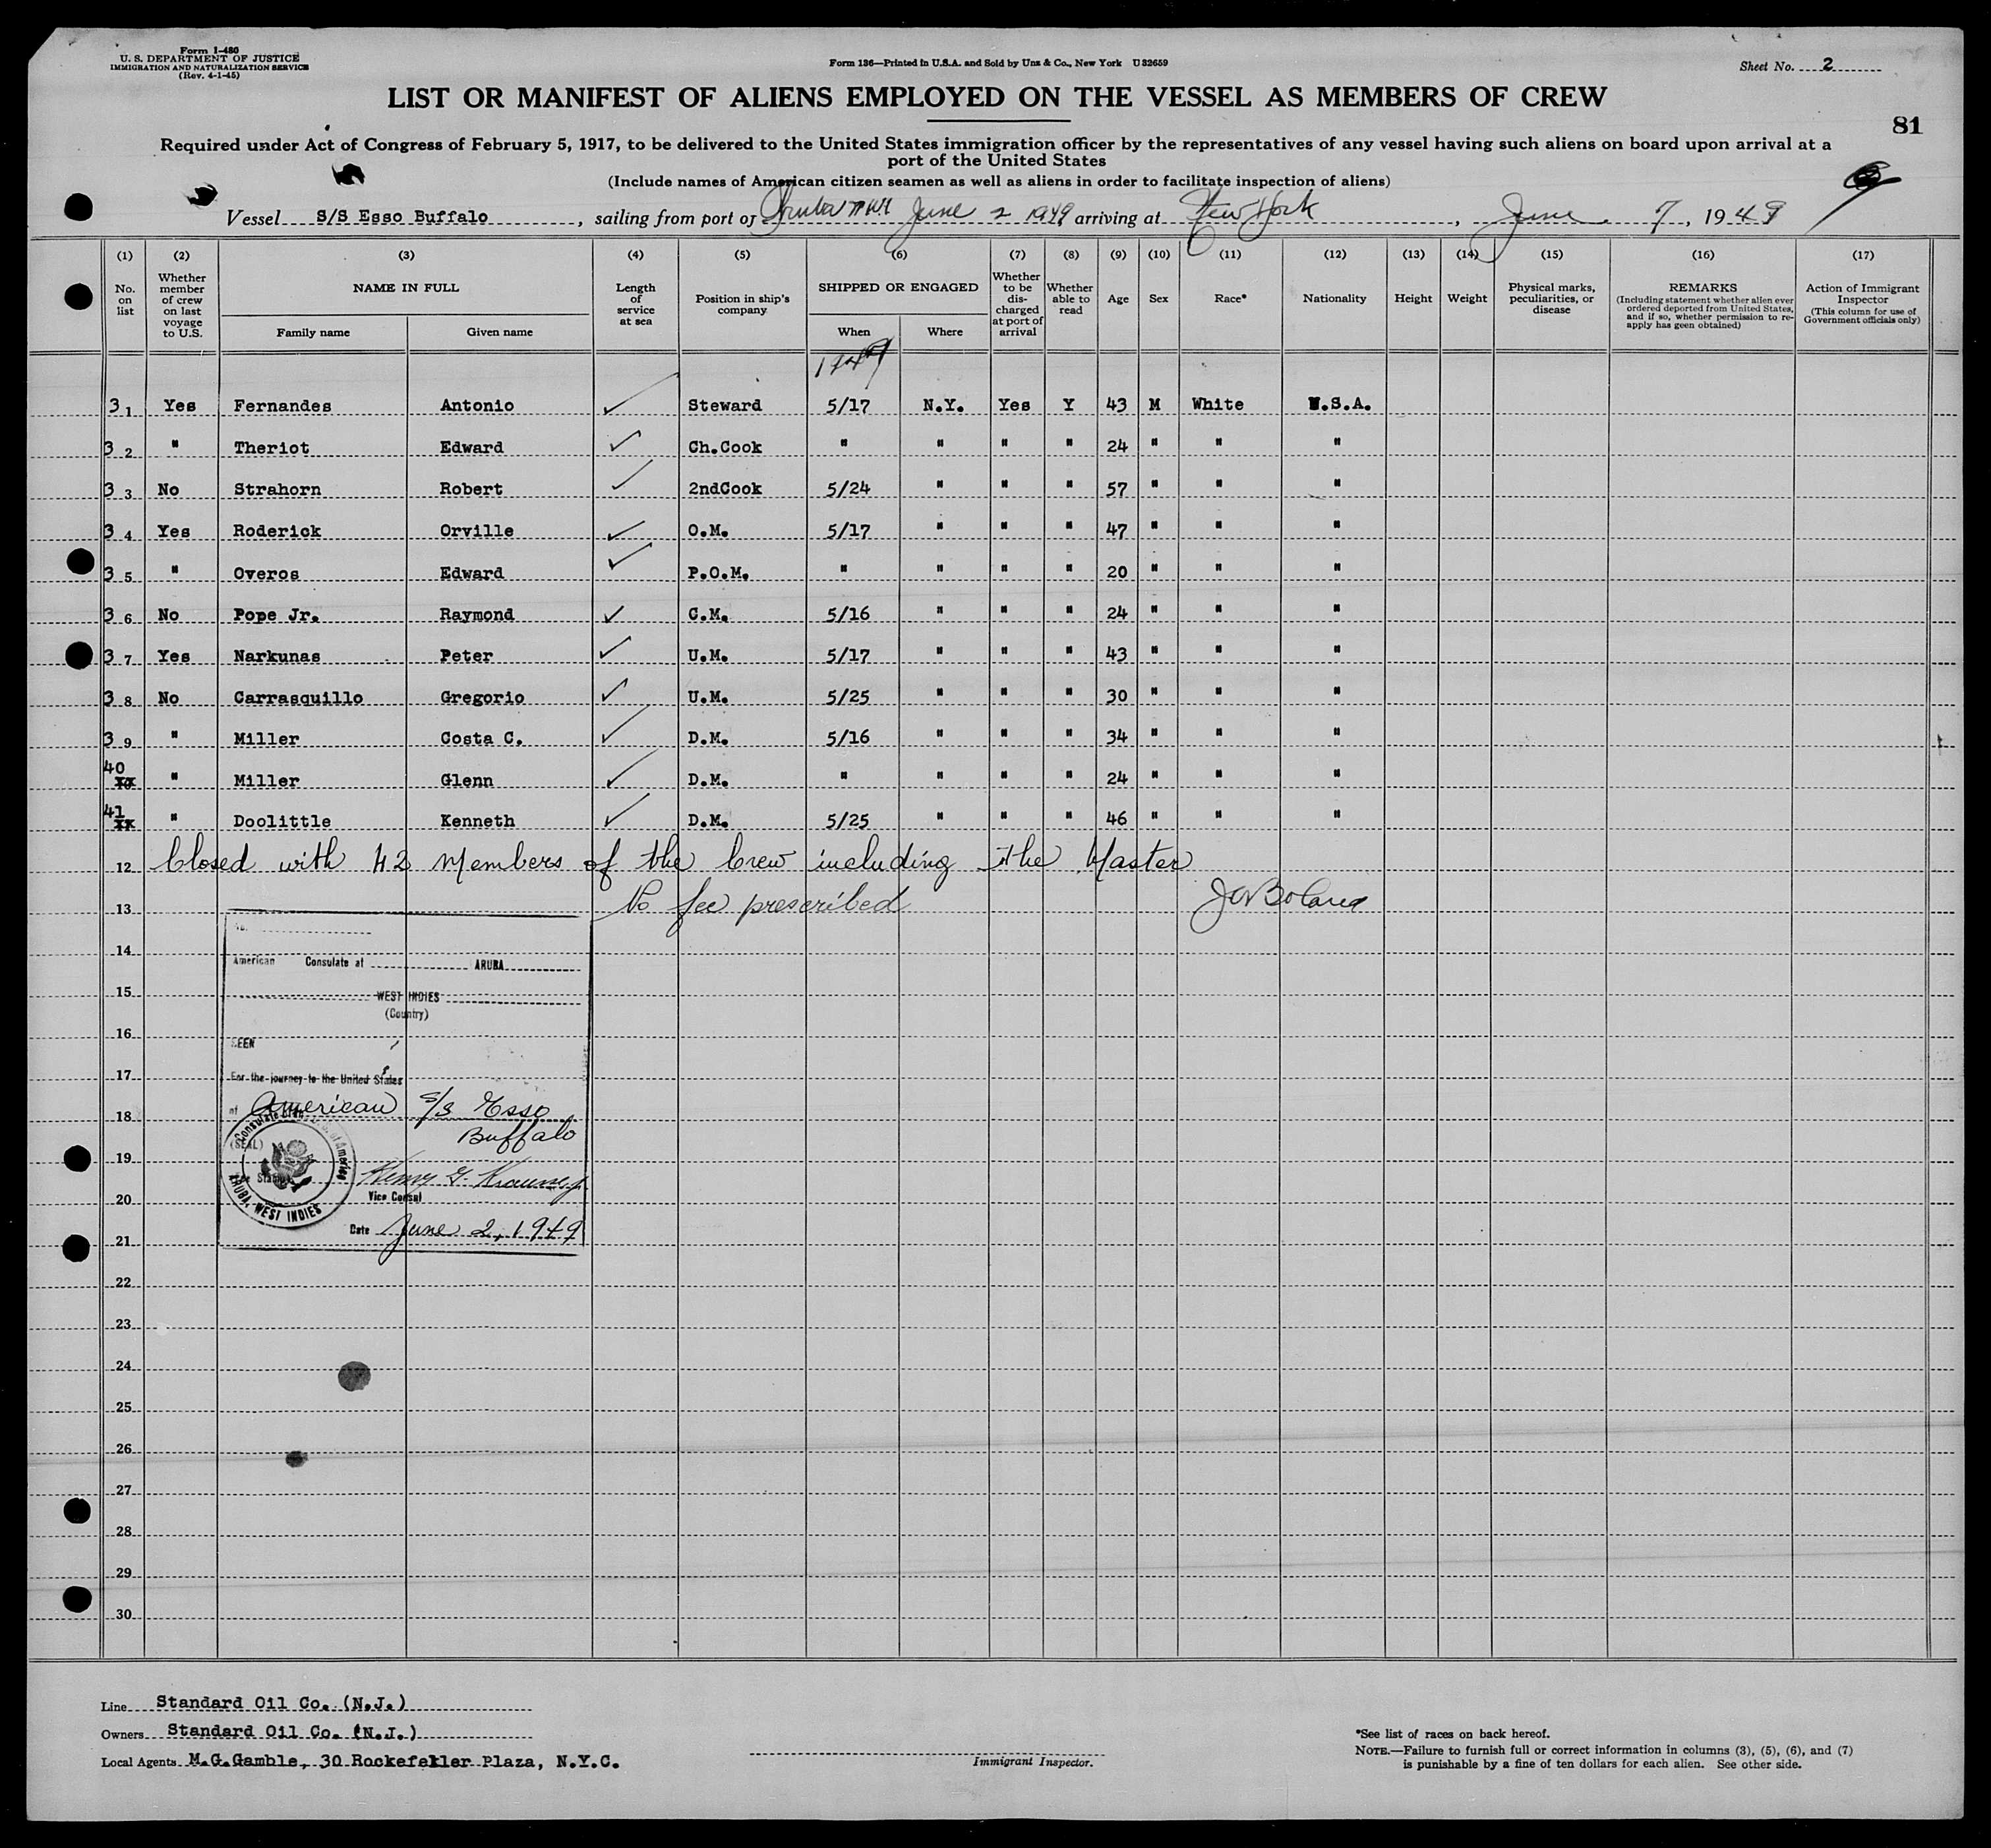 Form I-480
U. S. DEPARTMENT OF JUSTICE
IMMIGRATION AND NATURALIZATION SERVICE
(Rev. 4-1-45)
Form 136—Printed in U.S.A. and Sold by Unz & Co., New York U 32659
Sheet No. 2
LIST OR MANIFEST OF ALIENS EMPLOYED ON THE VESSEL AS MEMBERS OF CREW
81
Required under Act of Congress of February 5, 1917, to be delivered to the United States immigration officer by the representatives of any vessel having such aliens on board upon arrival at a
port of the United States
(Include names of American citizen seamen as well as aliens in order to facilitate inspection of aliens)
Vessel S/S Esso Buffalo, sailing from port of Aruba NWI June 2 1949 arriving at New York, June 7, 1949
(1) (2) (3) (4) (5) (6) (7) (8) (9) (10) (11) (12) (13) (14) (15) (16) (17)
No. on list
Whether member of crew on last voyage to U.S.
NAME IN FULL
Family name
Given name
Length of service at sea
Position in ship's company
SHIPPED OR ENGAGED
When
Where
Whether to be discharged at port of arrival
Whether able to read
Age
Sex
Race*
Nationality
Height
Weight
Physical marks, peculiarities, or disease
REMARKS
(Including statement whether alien ever ordered deported from United States, and if so, whether permission to re-apply has geen obtained)
Action of Immigrant Inspector
(This column for use of Government officials only)
1949
31 Yes Fernandes Antonio Steward 5/17 N.Y. Yes Y 43 M White U.S.A.
32 " Theriot Edward Ch.Cook " " " " 24 " " "
33 No Strahorn Robert 2ndCook 5/24 " " " 57 " " "
34 Yes Roderick Orville O.M. 5/17 " " " 47 " " "
35 " Overos Edward P.O.M. " " " " 20 " " "
36 No Pope Jr. Raymond C.M. 5/16 " " " 24 " " "
37 Yes Narkunas Peter U.M. 5/17 " " " 43 " " "
38 No Carrasquillo Gregorio U.M. 5/25 " " " 30 " " "
39 " Miller Costa C. D.M. 5/16 " " " 34 " " "
40 " Miller Glenn D.M. " " " " 24 " " "
41 " Doolittle Kenneth D.M. 5/25 " " " 46 " " "
12 Closed with 42 Members of the Crew including the Master
13 No fee prescribed
14
American Consulate at ARUBA
15
WEST INDIES
(Country)
16
SEEN
17
For the journey to the United States
of American S/S Esso
18
Buffalo
(SEAL)
19
Consulate of the U.S. of America
ARUBA, WEST INDIES
20
Vice Consul
Date June 2, 1949
21
22
23
24
25
26
27
28
29
30
Line Standard Oil Co. (N.J.)
Owners Standard Oil Co. (N.J.)
Local Agents M.G.Gamble, 30 Rockefeller Plaza, N.Y.C.
Immigrant Inspector.
*See list of races on back hereof.
NOTE.—Failure to furnish full or correct information in columns (3), (5), (6), and (7)
is punishable by a fine of ten dollars for each alien. See other side.